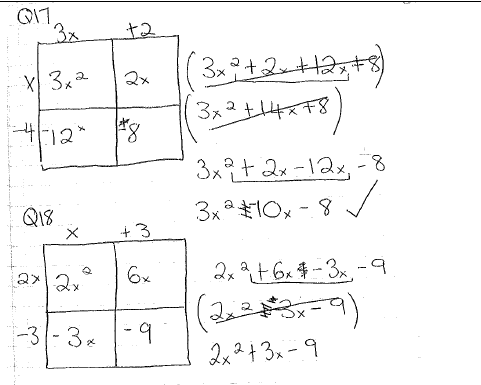 Q17
3x +2
x 3x² 2x
-4 -12x -8
(3x² + 2x + 12x + 8)
(3x² + 14x + 8)
3x² + 2x - 12x - 8
3x² - 10x - 8 ✓
Q18
x +3
2x 2x² 6x
-3 -3x -9
2x² + 6x - 3x - 9
(2x² 3x - 9)
2x² + 3x - 9